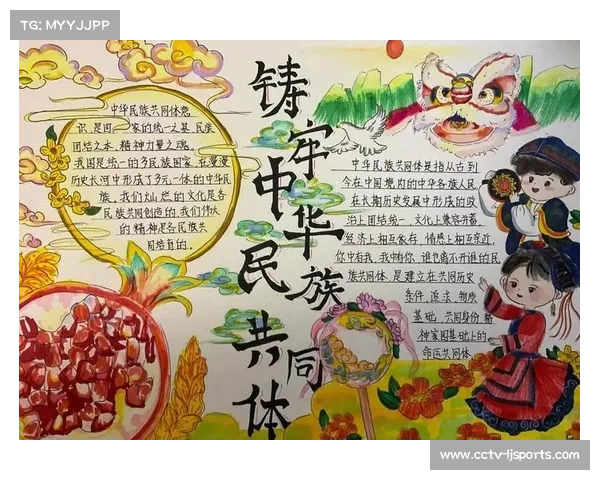 TG: MYYJJPP
铸牢中华民族共同体
中华民族共同体意
识,是四 家的统一之基、民族
团结之本、精神力量之魂。
我国是统一的多民族国家,在漫漫
历史长河中形成了多元一体的中华民
族。我们灿烂的文化是各
民族共同创造的,我们伟大
的精神是各民族共
同培育的。
中华民族共同体是指从古到
今在中国境内的中华各族人民
在长期历史发展中形成的政
治上团结统一,文化上兼容并蓄,
经济上相互依存,情感上相互亲近,
你中有我,我中有你,谁也离不开谁的民
族共同体,是建立在共同历史
条件、 物质
基础、共同身份、精
神家园基础上的
命运共同体。
www.cctv-ljsports.com